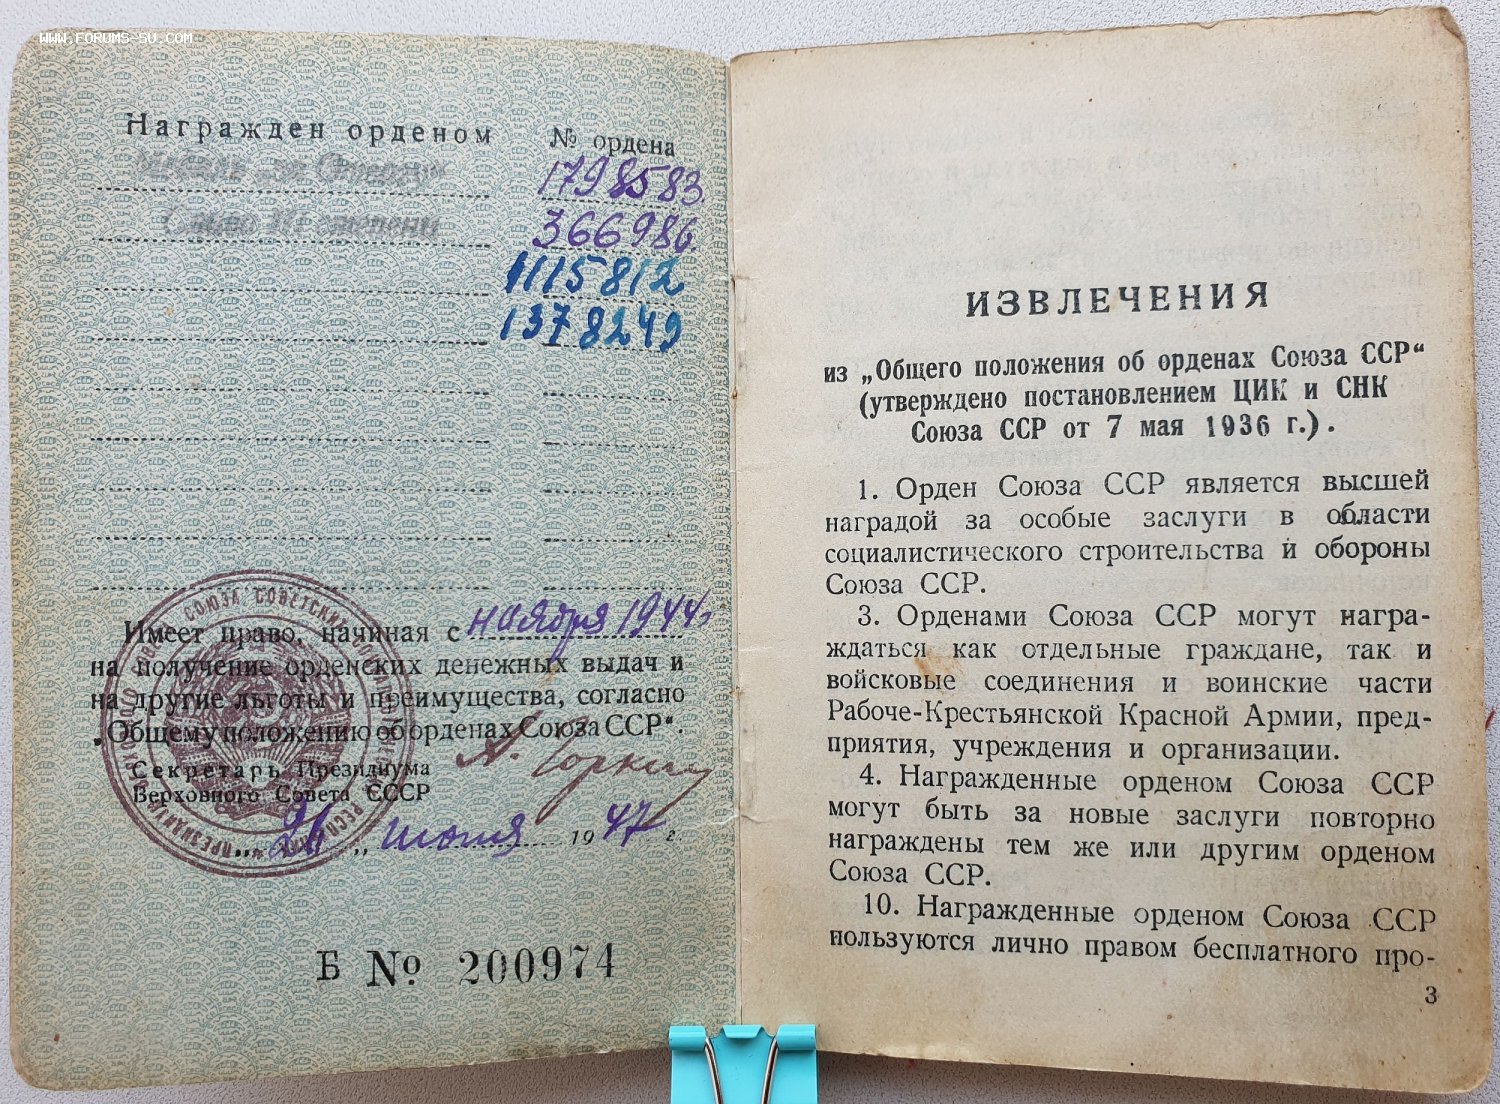 WWW.FORUMS-SU.COM
Награжден орденом № ордена
Медаль „за Отвагу“ 1798583
Слава III степени 366986
1115812
1378249
Имеет право, начиная с ноября 1944г
на получение орденских денежных выдач и
на другие льготы и преимущества, согласно
„Общему положению об орденах Союза ССР“.
Секретарь Президиума
Верховного Совета СССР
А. Горкин
„26„ июля 1947 г
Б № 200974
ИЗВЛЕЧЕНИЯ
из „Общего положения об орденах Союза ССР“
(утверждено постановлением ЦИК и СНК
Союза ССР от 7 мая 1936 г.).
1. Орден Союза ССР является высшей
наградой за особые заслуги в области
социалистического строительства и обороны
Союза ССР.
3. Орденами Союза ССР могут награ-
ждаться как отдельные граждане, так и
войсковые соединения и воинские части
Рабоче-Крестьянской Красной Армии, пред-
приятия, учреждения и организации.
4. Награжденные орденом Союза ССР
могут быть за новые заслуги повторно
награждены тем же или другим орденом
Союза ССР.
10. Награжденные орденом Союза ССР
пользуются лично правом бесплатного про-
3